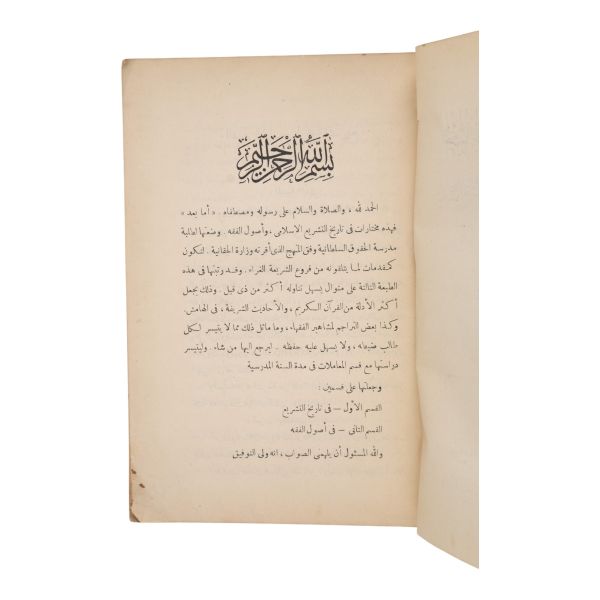 بسم الله الرحمن الرحيم
الحمد لله ، والصلاة والسلام على رسوله ومصطفاه . « أما بعد »
فهذه مختارات فى تاريخ التشريع الاسلامى ، وأصول الفقه . وضعتها لطلبة
مدرسة الحقوق السلطانية وفق المنهج الذى أقرته وزارة الحقانية . لتكون
كمقدمات لما يتلقونه من فروع الشريعة الغراء . وقد رتبتها فى هذه
الطبعة الثالثة على منوال يسهل تناوله أكثر من ذى قبل . وذلك بجعل
أكثر الأدلة من القرآن الكريم ، والأحاديث الشريفة ، فى الهامش.
وكذا بعض التراجم لمشاهير الفقهاء، وما ماثل ذلك مما لا يتيسر لكل
طالب ضبطه ، ولا يسهل عليه حفظه . ليرجع اليها من شاء . وليتيسر
دراستها مع قسم المعاملات فى مدة السنة المدرسية
وجعلتها على قسمين :
القسم الأول — فى تاريخ التشريع
القسم الثانى — فى أصول الفقه
والله المسئول أن يلهمنى الصواب ، انه ولى التوفيق